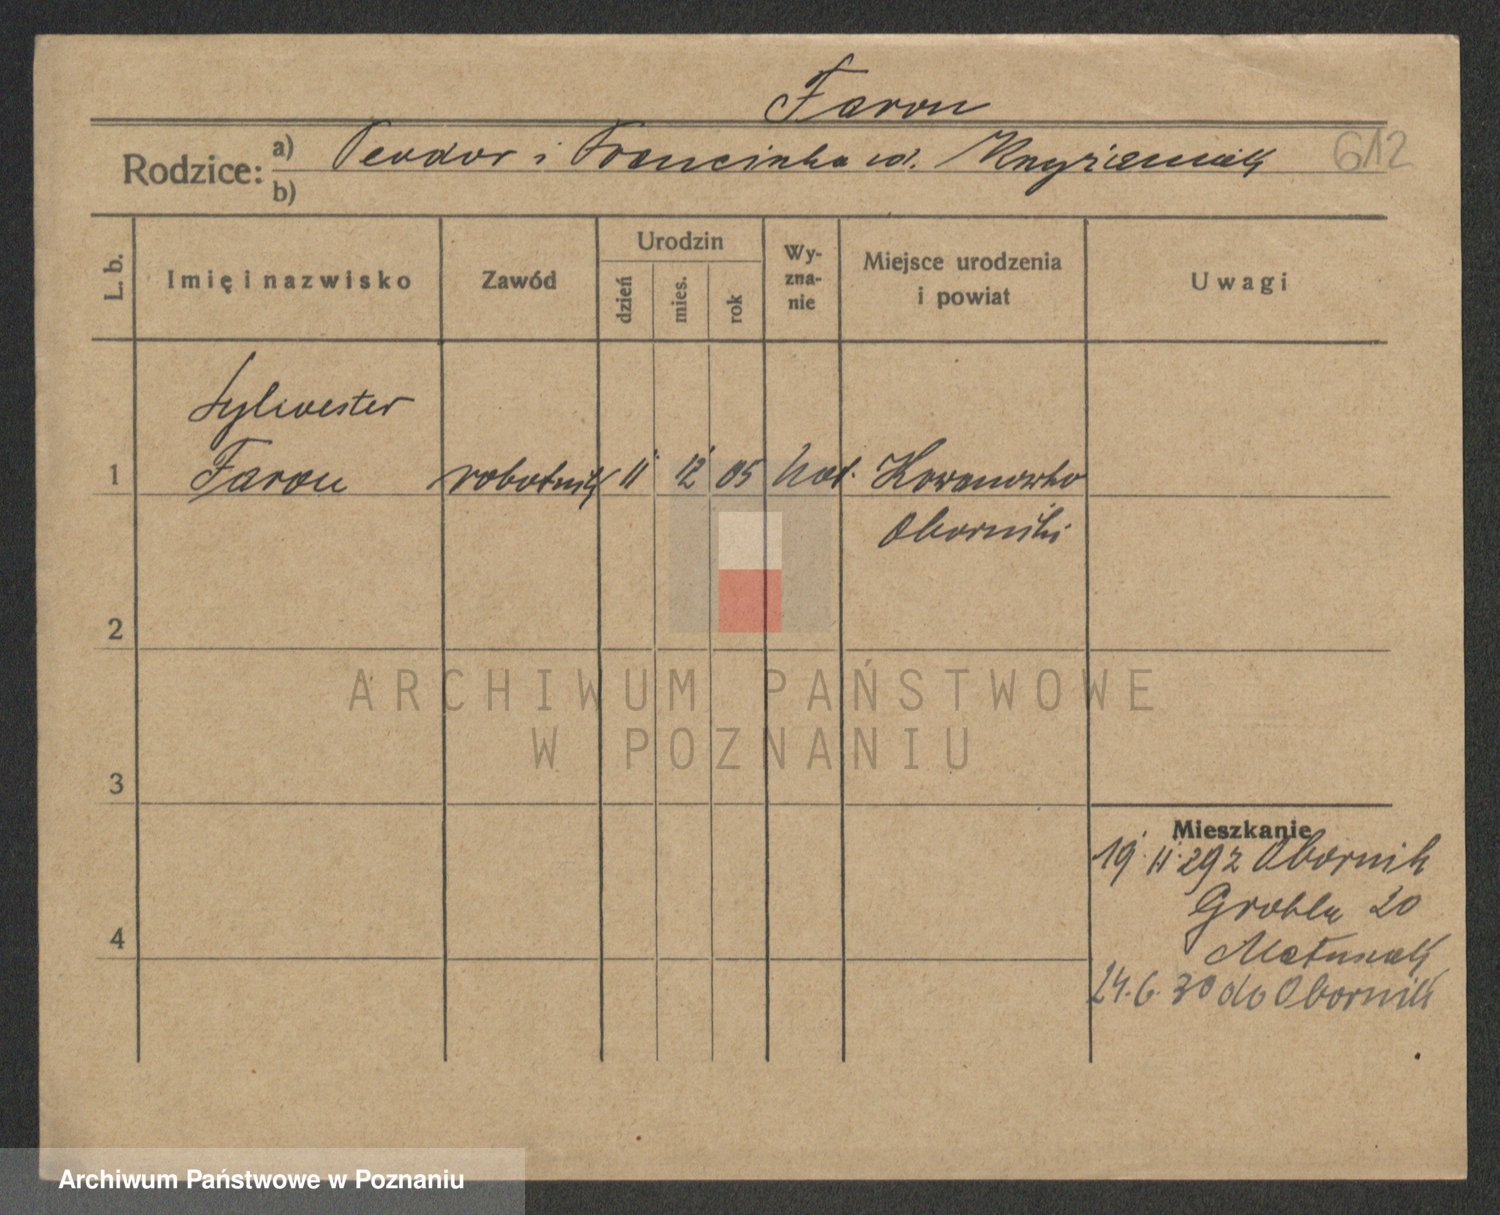 Faron
Rodzice: a) Teodor i Franciszka ur.
b)
612
L. b.
Imię i nazwisko
Zawód
Urodzin
dzień
mies.
rok
Wy-
zna-
nie
Miejsce urodzenia
i powiat
Uwagi
Sylwester
1 Faron robotnik 11 12 05 kat. Kowanowko
Oborniki
2
3
4
Mieszkanie
19.11.29 z Obornik
Grobla 20
Matusiak
24.6.30 do Obornik
ARCHIWUM PAŃSTWOWE
W POZNANIU
Archiwum Państwowe w Poznaniu